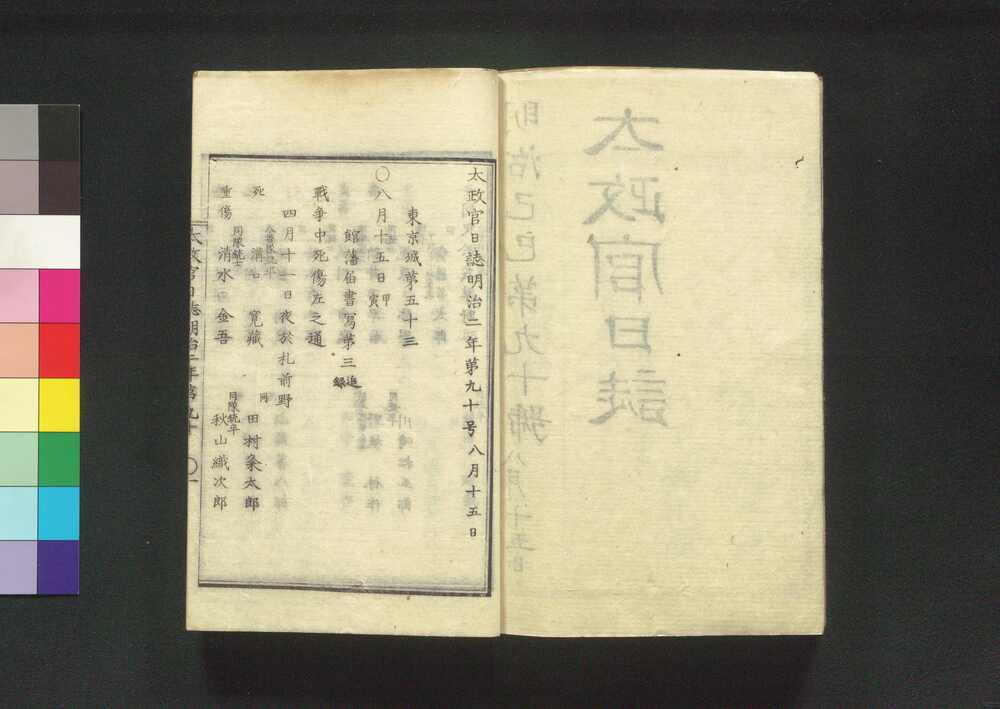 太政官日誌
明治己巳第九十號 八月十五日
太政官日誌明治二年第九十号 八月十五日
東京城第五十三
〇八月十五日甲寅
館藩届書写第三追録
戦争中死傷左之通
四月十一日夜於札前野
死
溝口寛蔵
同
田村粂太郎
重傷
同隊銃士
清水金吾
同隊銃卒
秋山織次郎
太政官日誌明治二年第九十
〇一